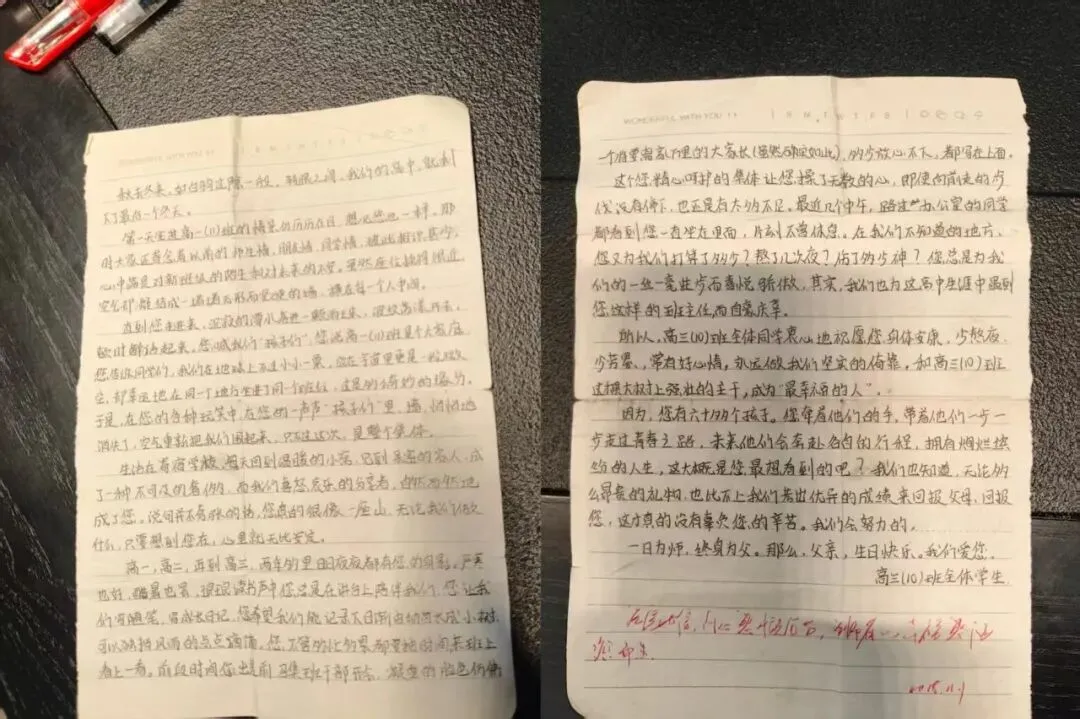 WONDERFUL WITH YOU
秋去冬来,如白驹过隙一般,转眼之间,我们的高中,就剩
下了最后一个冬天。
第一天坐进高一(11)班的情景仍历历在目,想必您也一样。那
时大家还背负着以前的师生情,朋友情,同学情,彼此相识甚少,
心中满是对新班级的陌生和对未来的不安。虽然座位挨得很近,
空气却凝结成一堵堵无形而坚硬的墙,横在每一个人中间。
直到您走进来,沉寂的潭水卷进一颗石来,波纹荡漾开去,
顿时鲜活起来。您喊我们“孩子们”,您说高一(11)班是个大家庭
您告诉同学们,我们在地球上不过小小一粟,放在宇宙里更是一粒微
尘,却幸运地在同一个地方坐进了同一个班级,这是多么奇妙的缘分。
于是,在您的各种玩笑中,在您的一声声“孩子们”里,墙,悄悄地
消失了,空气重新把我们围起来,只不过这次,是整个集体。
生活在寄宿学校,每天回到温暖的小窝,见到亲密的家人,成
了一种不可及的奢侈,而我们喜怒哀乐的分享者,自然而然地
成了您,说句并不夸张的话,您真的很像一座山,无论我们做
什么,只要想到您在,心里就无比安定。
高一,高二,再到高三,两年多里日日夜夜都有您的身影。严寒
也好,酷暑也罢,琅琅读书声中您总是在讲台上陪伴我们,您让我
们写随笔,写成长日记,您希望我们能记录下日渐由幼苗长成小树
可以独挡风雨的点点滴滴,您不管多忙多累都要抽时间来班上
看上一看。前段时间您出差前召集班干部开会,凝重的脸色仿佛
WONDERFUL WITH YOU
S M T W T F S
一个将要离家万里的大家长(虽然确实如此),多多放心不下,都写在上面。
这个您精心呵护的集体让您操了无数的心,即便向前走的步
伐没有停下,也还是有太多不足。最近几个中午,路过办公室的同学
都看到您一直坐在里面,片刻不曾休息。在我们不知道的地方,
您又为我们打算了多少?熬了几次夜?伤了多少神?您总是为我
们的一丝一毫进步而喜悦骄傲,其实,我们也为这高中生涯中遇到
您这样的班主任而自豪庆幸。
所以,高三(10)班全体同学衷心地祝愿您身体安康,少熬夜,
少劳累,常有好心情,永远做我们坚实的倚靠。和高三(10)班
这棵大树上强壮的主干,成为“最幸福的人”。
因为,您有六十多个孩子。您牵着他们的手,带着他们一步一
步走过青春之路,未来他们会奔赴各自的行程,拥有绚烂热
灼的人生,这大概是您最想看到的吧?我们也知道,无论多
么昂贵的礼物,也比不上我们考出优异的成绩来回报父母,回报
您,这才真的没有辜负您的辛苦。我们会努力的。
一日为师,终身为父。那么,父亲,生日快乐。我们爱您。
高三(10)班全体学生